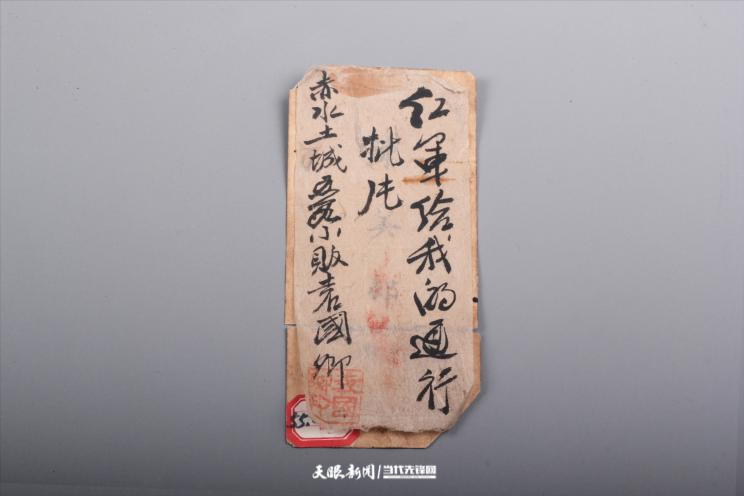 红军给我的通行
赤水土城小贩袁國卿
55.
天眼新闻/当代先锋网